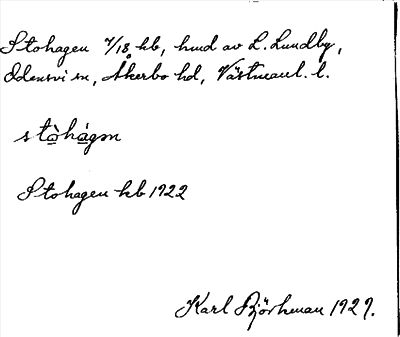 Stohagen 7/18 kb, hmd av L. Lundby,
Odensvi sn, Åkerbo hd, Västmanl. l.
stòhágen
Stohagen kb 1922
Karl Björkman 1927.